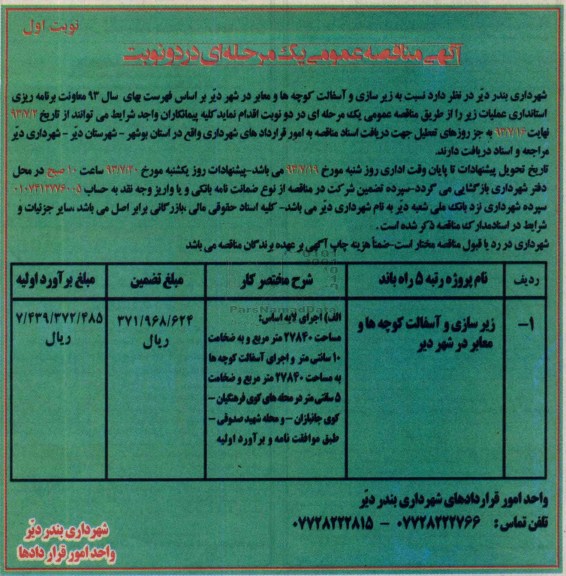 نوبت اول
آگهی مناقصه عمومی یک مرحله‌ای در دو نوبت
شهرداری بندر دیّر در نظر دارد نسبت به زیر سازی و آسفالت کوچه ها و معابر در شهر دیّر بر اساس فهرست بهای سال ۹۳ معاونت برنامه ریزی
استانداری عملیات زیر را از طریق مناقصه عمومی یک مرحله ای در دو نوبت اقدام نماید کلیه پیمانکاران واجد شرایط می توانند از تاریخ ۹۳/۷/۲
نهایت ۹۳/۷/۱۶ به جز روزهای تعطیل جهت دریافت اسناد مناقصه به امور قرارداد های شهرداری واقع در استان بوشهر - شهرستان دیّر - شهرداری دیّر
مراجعه و اسناد دریافت دارند.
تاریخ تحویل پیشنهادات تا پایان وقت اداری روز شنبه مورخ ۹۳/۷/۱۹ می باشد-پیشنهادات روز یکشنبه مورخ ۹۳/۷/۲۰ ساعت ۱۰ صبح در محل
دفتر شهرداری بازگشایی می گردد-سپرده تضمین شرکت در مناقصه از نوع ضمانت نامه بانکی و یا واریز وجه نقد به حساب ۰۱۰۷۴۱۲۷۷۶۰۰۵
سپرده شهرداری نزد بانک ملی شعبه دیّر به نام شهرداری دیّر می باشد- کلیه اسناد حقوقی مالی ،بازرگانی برابر اصل می باشد ،سایر جزئیات و
شرایط در اسناد مدارک مناقصه ذکر شده است .
شهرداری در رد یا قبول مناقصه مختار است-ضمناً هزینه چاپ آگهی بر عهده برندگان مناقصه می باشد
ردیف
نام پروژه رتبه ۵ راه باند
شرح مختصر کار
مبلغ تضمین
مبلغ برآورد اولیه
۱-
زیر سازی و آسفالت کوچه ها و
معابر در شهر دیر
الف) اجرای لایه اساس:
مساحت ۲۷۸۴۰ متر مربع و به ضخامت
۱۰ سانتی متر و اجرای آسفالت کوچه ها
به مساحت ۲۷۸۴۰ متر مربع و ضخامت
۵ سانتی متر در محله های کوی فرهنگیان -
کوی جانبازان - و محله شهید صدوقی -
طبق موافقت نامه و برآورد اولیه
۳۷۱/۹۶۸/۶۲۴
ریال
۷/۴۳۹/۳۷۲/۴۸۵
ریال
ParsNamadData
واحد امور قراردادهای شهرداری بندر دیّر
تلفن تماس: ۰۷۷۲۸۲۲۲۷۶۶ - ۰۷۷۲۸۲۲۲۸۱۵
شهرداری بندر دیّر
واحد امور قرار دادها